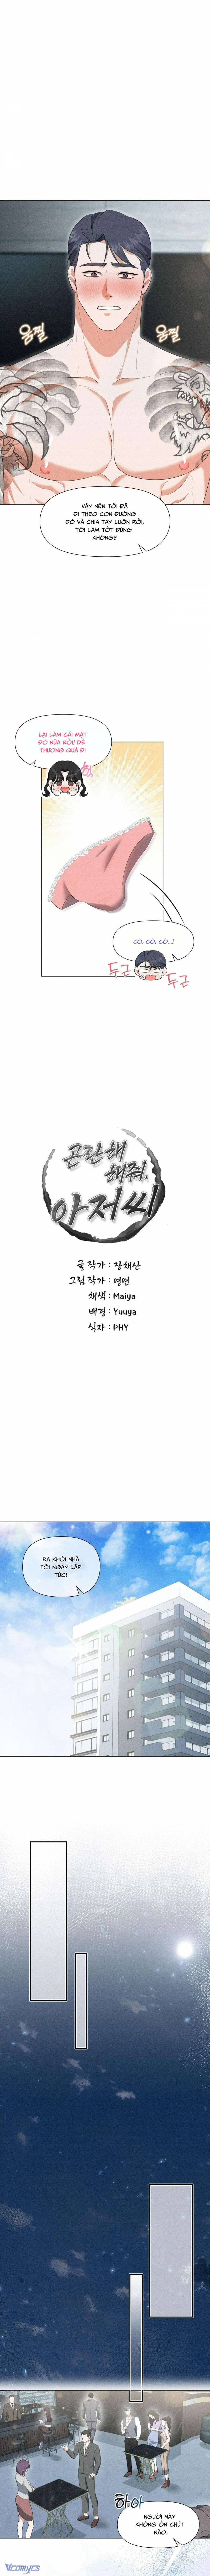 움찔
움찔
VẬY NÊN TÔI ĐÃ
ĐI THEO CON ĐƯỜNG
ĐÓ VÀ CHIA TAY LUÔN RỒI,
TÔI LÀM TỐT ĐÚNG
KHÔNG?
LẠI LÀM CÁI MẶT
ĐÓ NỮA RỒI! DỄ
THƯƠNG QUÁ ĐI
CÒ, CÒ, CÒ...!
두근
두근
곤란해
해줘,
아저씨
글 작가 : 장채산
그림 작가 : 영맨
채색 : Maiya
배경 : Yuuya
식자 : PHY
RA KHỎI NHÀ
TÔI NGAY LẬP
TỨC!
하아
NGƯỜI NÀY
KHÔNG ỔN CHÚT
NÀO.
Vcomycs